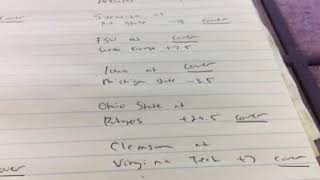 at cover
State cover
FSU at cover
+7.5
Iowa at cover
Michigan State -3.5
Ohio State at
Rutgers +29.5 cover
Clemson at
Virginia Tech +7 cover
over
cover